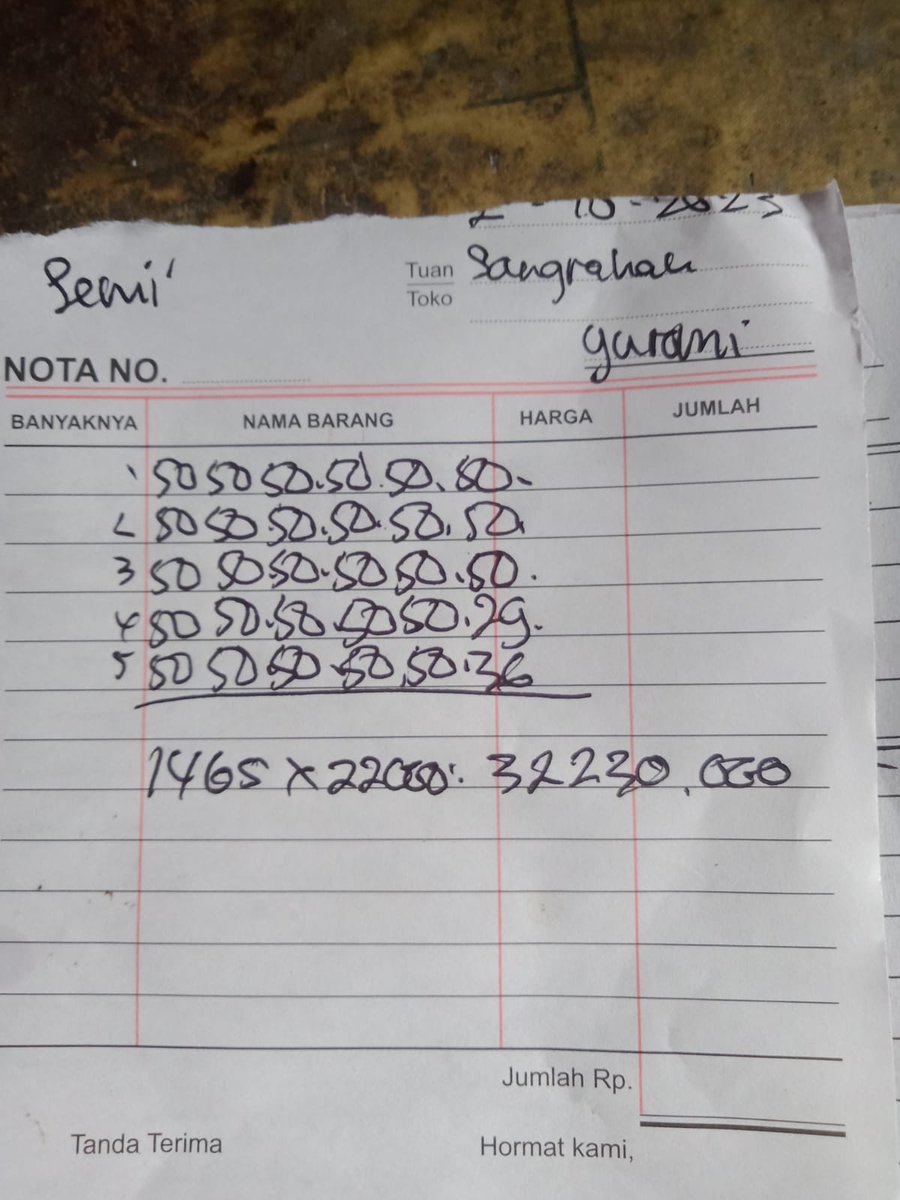 2-10-2023
Semi'
Tuan Sangrahan
Toko
gurami
NOTA NO.
BANYAKNYA NAMA BARANG HARGA JUMLAH
1 50 50 50.50.50.50.
2 50 50 50.50.50.50.
3 50 50 50.50 50.50.
4 50 50.50 50 50.29.
5 50 50 50 50.50.36
1465 x 22000: 32230.000
Jumlah Rp.
Tanda Terima Hormat kami,